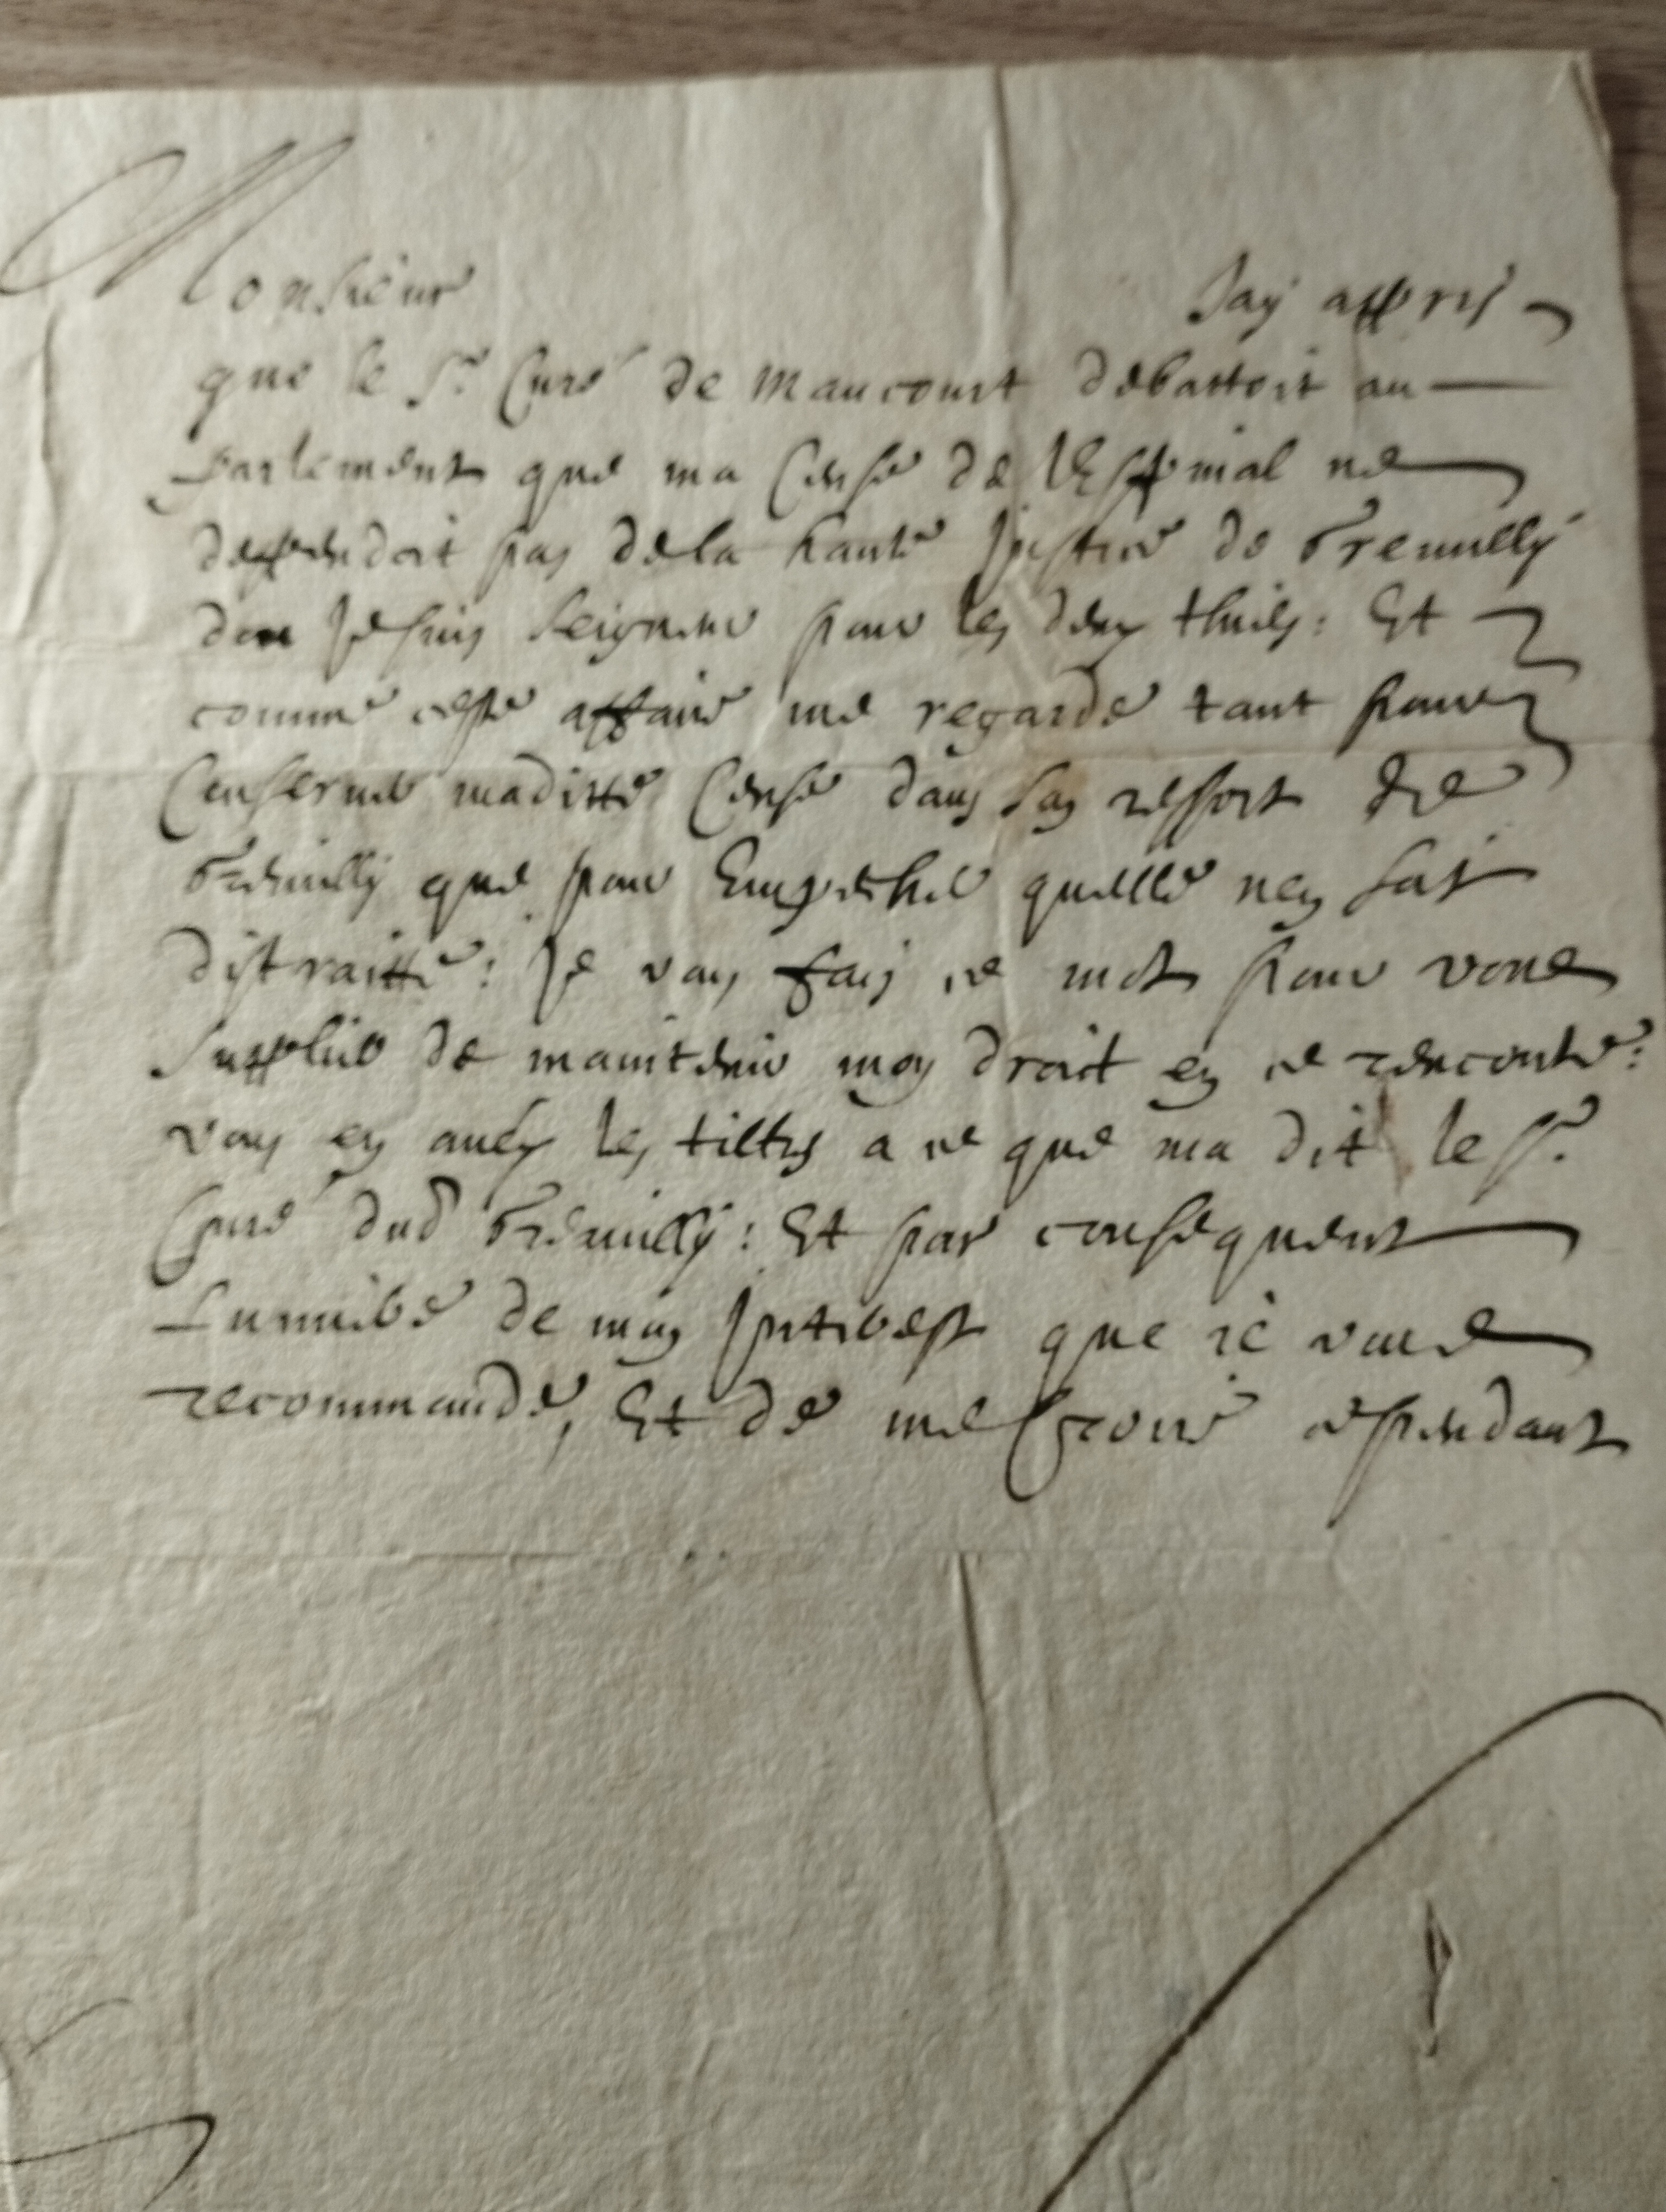 Monsieur Jay appris
que le Sr. Curé de Maucourt debattoit au
Parlement que ma Cense de lEspinal ne
deppendoit pas dela haute Justice de
don Je suis Seigneur pour les deux : Et
comme ceste affaire me regarde tant pour
Conserver maditte Cense dans son ressort de
que pour Empecher quelle nen soit
distraitte : Je vous fais ce mot pour vous
Supplier de maintenir mon droit en ce rencontre :
vous en avez les tiltres a ce que ma dit le Sr.
Curé dud : Et par consequent
Lumiere de mon Interest que ie vous
recommande, Et de me Croire cependant